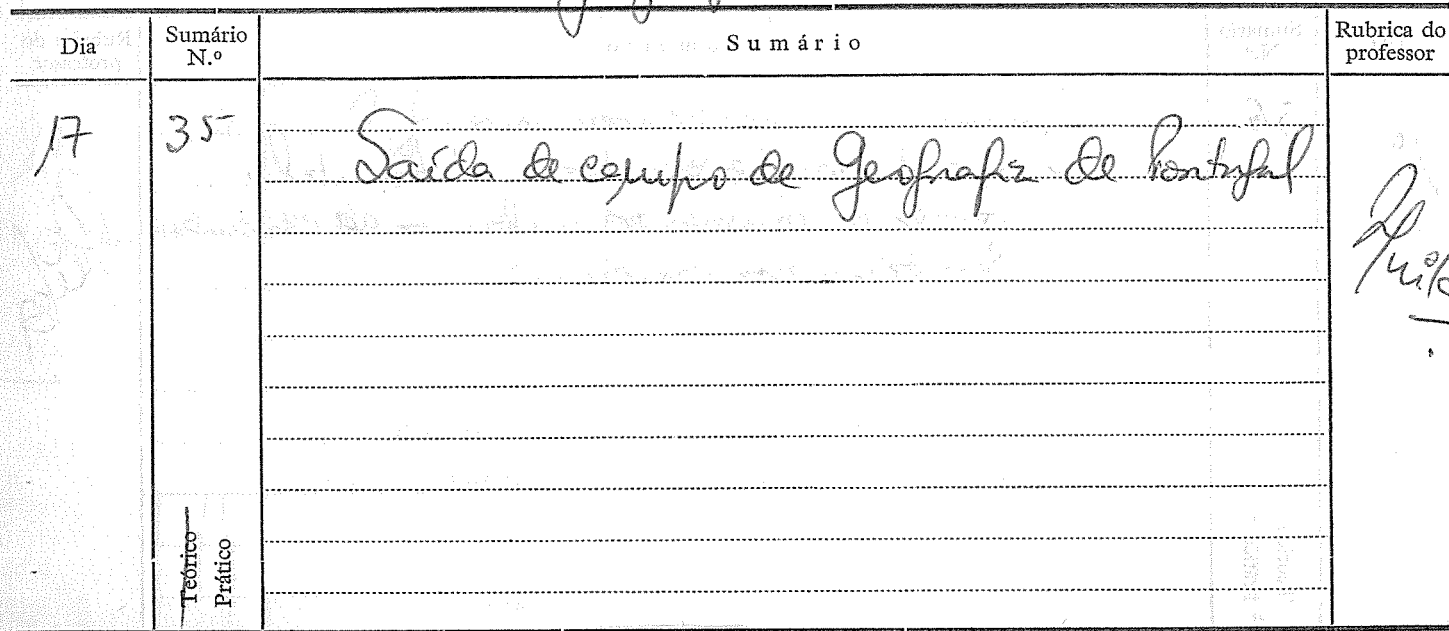 Dia
Sumário N.º
Sumário
Rubrica do professor
17
35
Saída de campo de Geografia de Portugal
Teórico
Prático